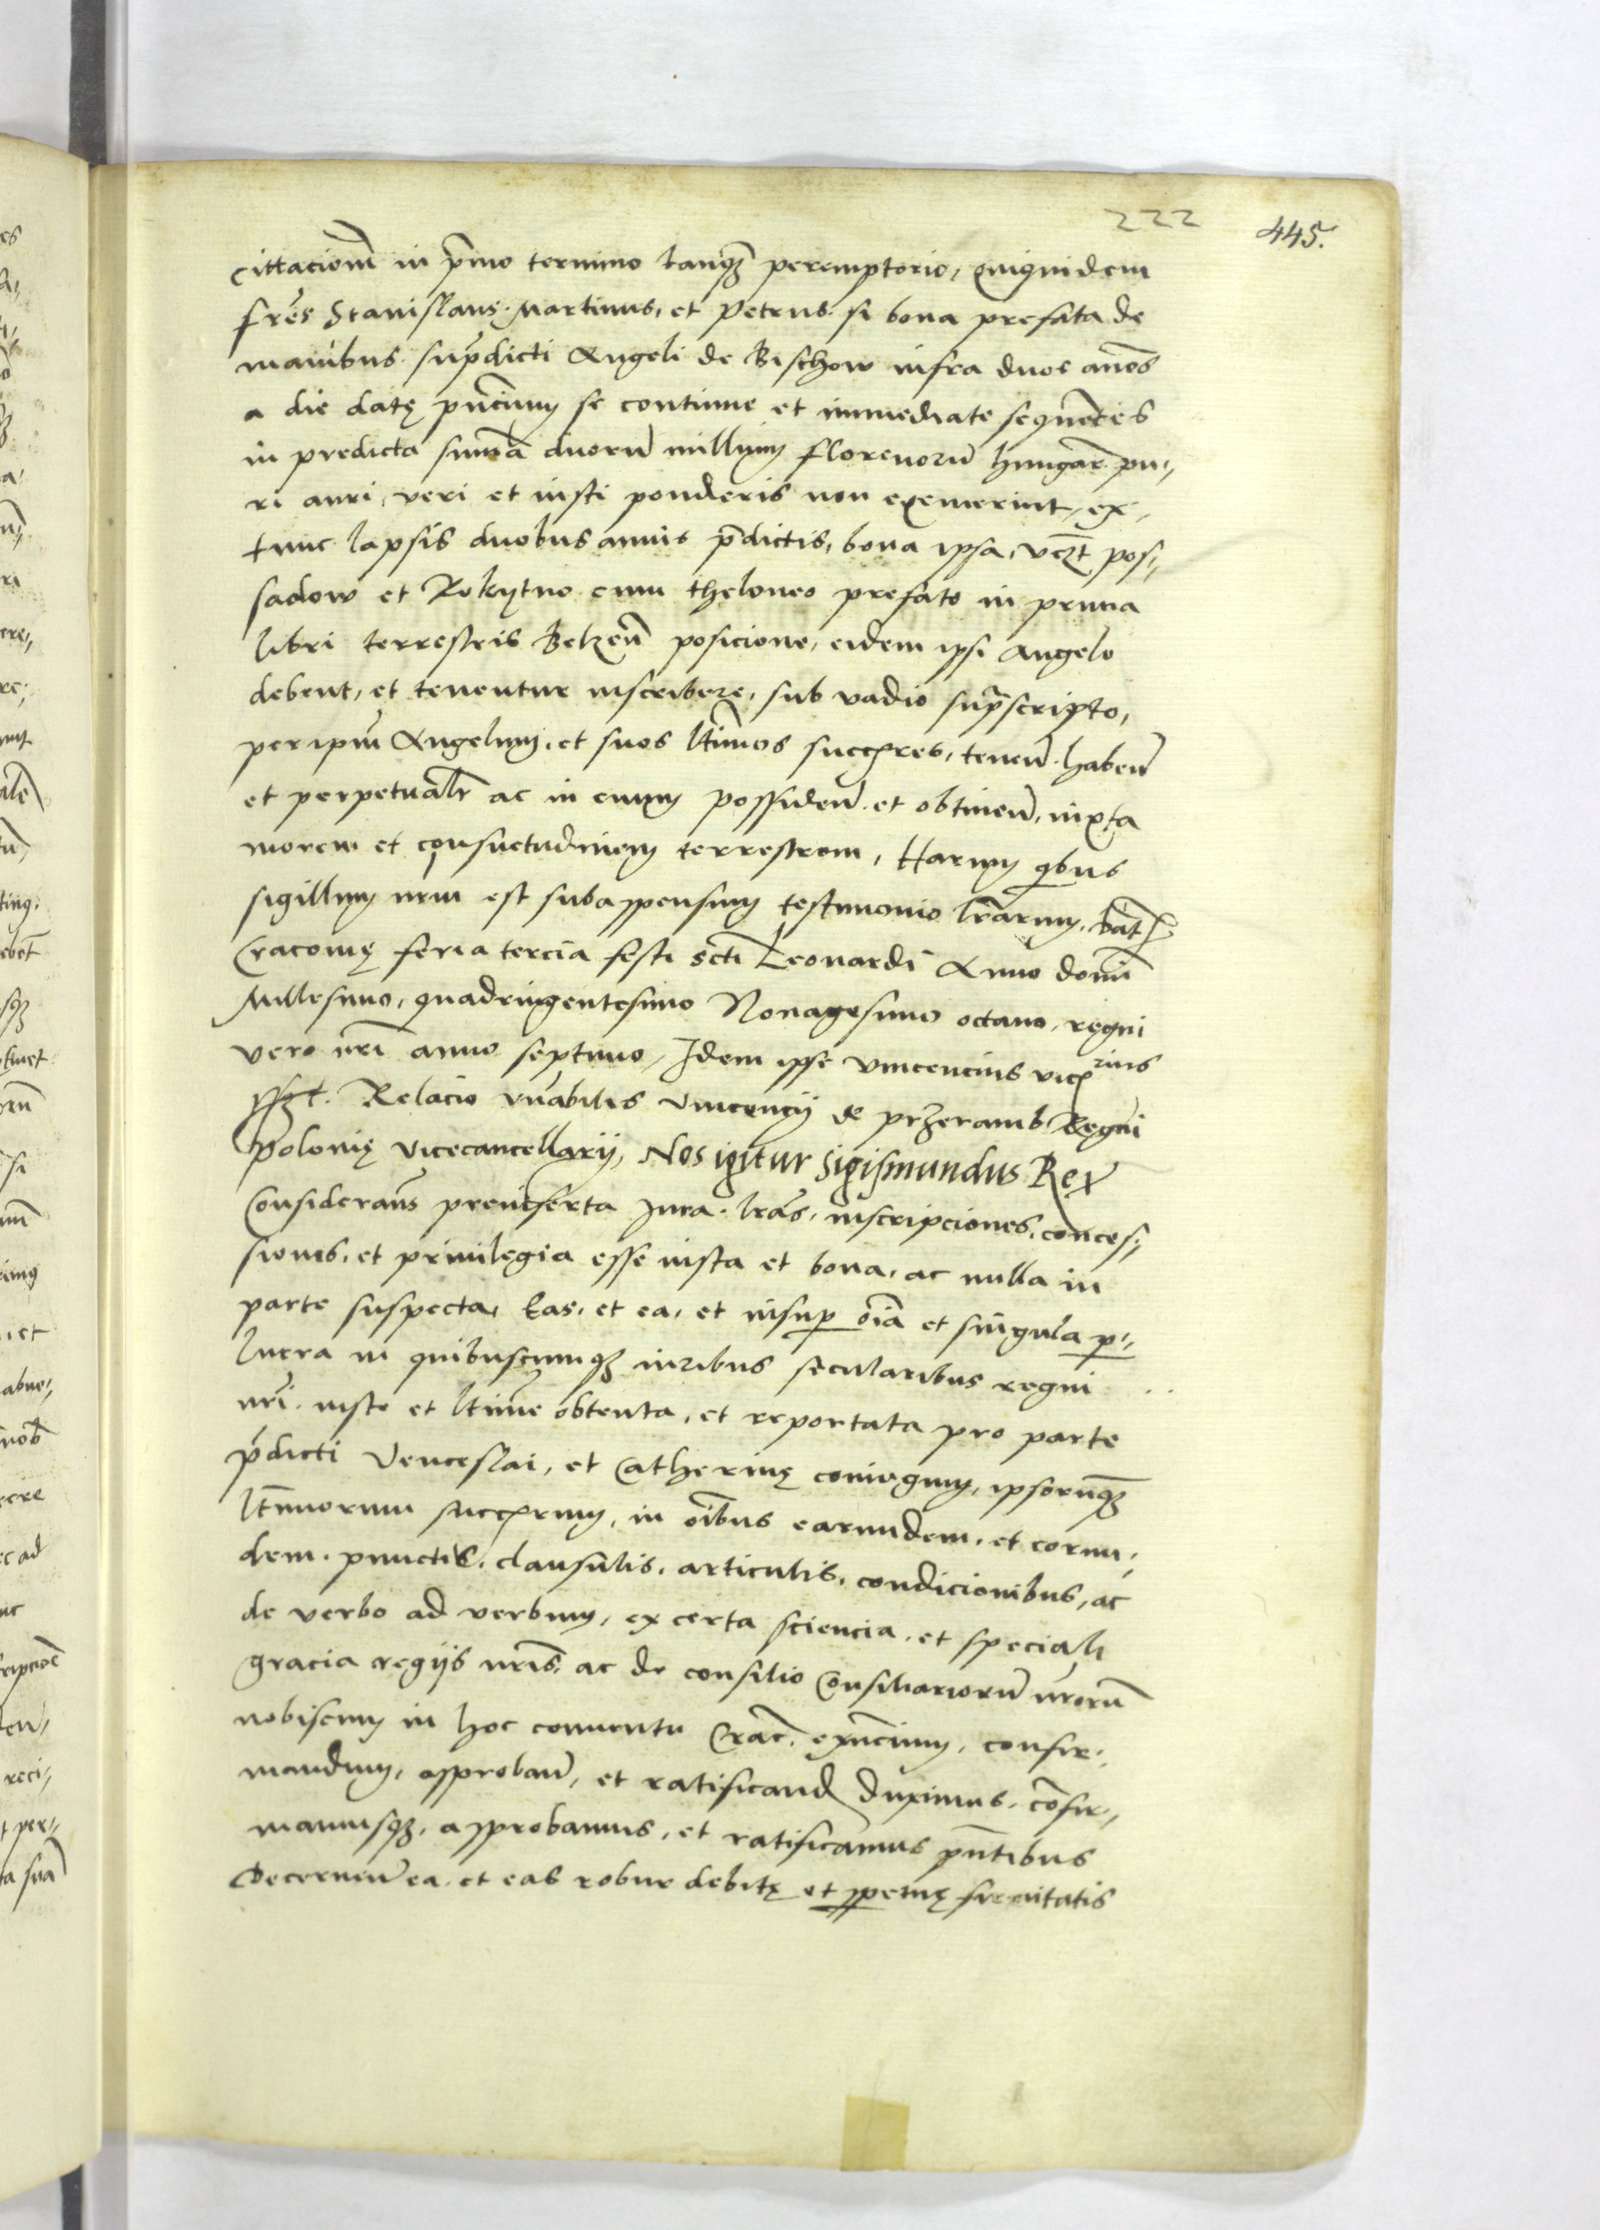 222 445.
cittacionē in p̄mo termino tanq̄ꝫ peremptorio, Quiquidem
fr̄es Stanislaus. Martinus, et Petrus. si bona prefata de
manibus. sup̄dicti Angeli de Bischow infra duos annos
a die datę pn̄cium se continue et immediate sequentes
in predicta sum̄a duorū millium florenorū hungar. pu„
ri auri, veri et iusti ponderis non exemerint, ex„
tunc lapsis duobus annis p̄dictis, bona ipsa, vcꝫt pos„
sadow et Rokytno cum theloneo prefato in prima
libri terrestris Belzen̄ posicione, eidem ipsi Angelo
debent, et tenentur inscribere, sub vadio sup̄scripto,
per ip̄m Angelum. et suos l̄timos succ̄res, tenen̄. haben̄
et perpetual̄r ac in euum possiden̄. et obtinen̄, iuxta
morem et consuetudinem terrestrem, Harum q̄bus
sigillum nr̄m est subappensum testimonio lr̄arum. Dat̄
Cracouię feria tercia festi sct̄i Leonardi Anno domī
Millesimo, quadringentesimo Nonagesimo octauo, regni
vero nr̄i anno septimo, Idem ipse Vincencius vic̄rius
sszt. Relacio vn̄abilis Vincencij de przeramb Regni
Polonię vicecancellarij, Nos igitur Sigismundus Rex
Considerans̄ preinserta Jura. lr̄as, inscripciones, conces„
siones, et priuilegia esse iusta et bona, ac nulla in
parte suspecta, Eas, et ea, et insuꝑ oīa et singula ꝑ„
lucra in quibuscumqꝫ iuribus secularibus regni ..
nr̄i. iuste et l̄time obtenta, et reportata pro parte
p̄dicti Venceslai, et Catherinę coniugum, ipsorūqꝫ
l̄timorum succ̄rum, in oībus earundem, et eorun„
dem. punctis, clausulis, articulis, condicionibus, ac
de verbo ad verbum, ex certa sciencia, et speciali
gracia regijs nr̄is, ac de consilio Consiliariorū nr̄orū
nobiscum in hoc conuentu Crac̄. exn̄cium, confir„
mandum, approban̄, et ratificand̄ duximus. cōfir„
mamusqꝫ, approbamus, et ratificamus pn̄tibus
Decernen̄ ea. et eas robur debitę et ꝑpetuę firmitatis